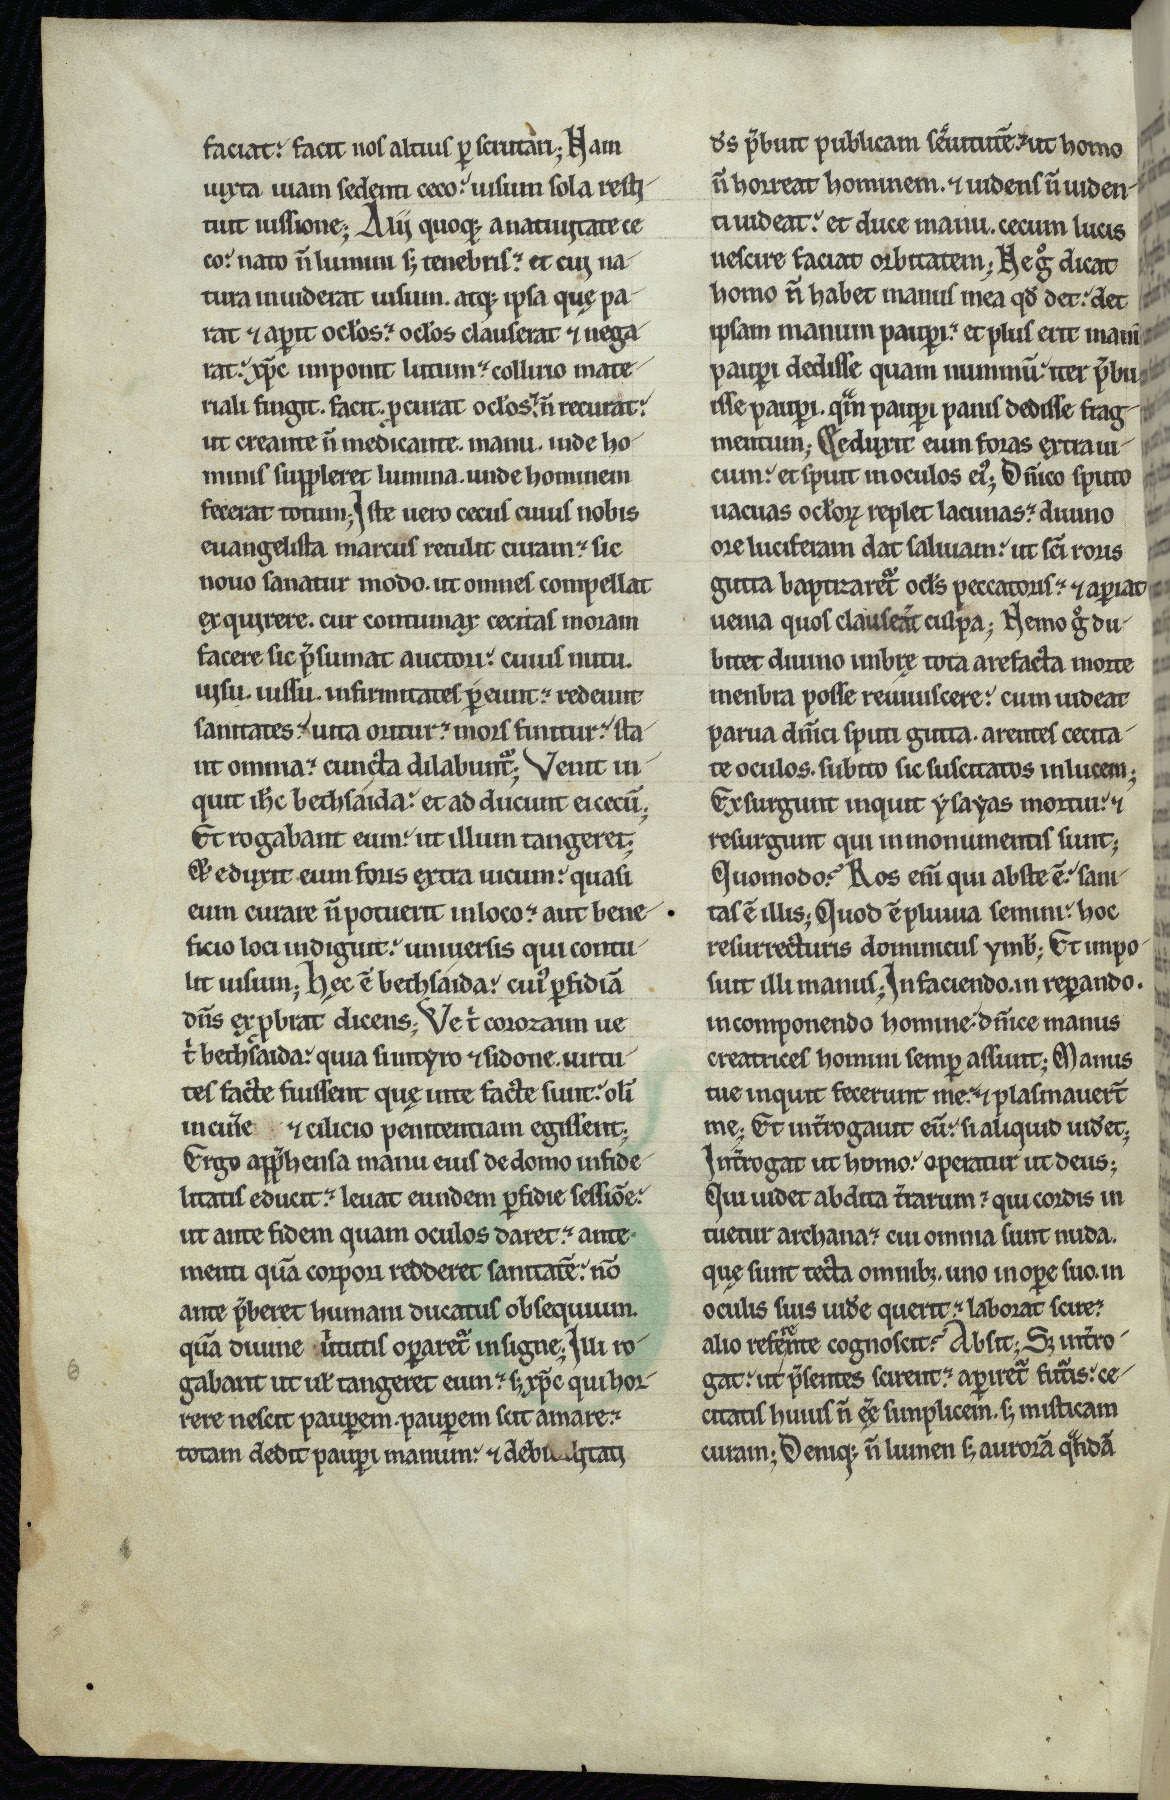 faciat? facit nos altius p̱ scrutari; Nam
iuxta uiam sedenti ceco? uisum sola resti-
tuit iussione; Alij quoq; a natiuitate ce
co? nato n̄ lumini s; tenebris? et cui na-
tura inuiderat uisum. atq; ipsa quę pa-
rat ⁊ ap̱it oc̄los? oc̄los clauserat ⁊ nega-
rat? xp̄c imponit lutum? collirio mate-
riali fingit. facit. p̱curat oc̄los? n̄ recurat?
ut creante n̄ medicante. manu. inde ho-
minis suppleret lumina. unde hominem
fecerat totum; Iste uero cecus cuius nobis
euangelista marcus retulit curam? sic
nouo sanatur modo. ut omnes compellat
exquirere. cur contumax cecitas moram
facere sic p̄sumat auctori? cuius nutu.
uisu. iussu. infirmitates p̱eunt? redeunt
sanitates? uita oritur? mors finitur? sta-
nt omnia? cuncta dilabunt᷑; Venit in-
quit ih̄c bethsaida? et ad ducunt ei cecū;
Et rogabant eum? ut illum tangeret;
Et eduxit eum foris extra uicum? quasi
eum curare n̄ potuerit in loco? aut bene-
ficio loci indiguit? uniuersis qui contu-
lit uisum; Hęc ē bethsaida? cuiꝰ p̱fidiā
dn̄s exp̱brat dicens; Ve t̄ corozaim ue
t̄ bethsaida? quia si in tyro ⁊ sidone. uirtu-
tes facte fuissent quę in te facte sunt? oli̅
in cin̄e ⁊ cilicio penitentiam egissent;
Ergo app̄hensa manu eius de domo infide-
litatis educit? leuat eundem p̱fidie sessiōe?
ut ante fidem quam oculos daret? ante
menti quā corpori redderet sanitatē? nō
ante p̄beret humani ducatus obsequium.
quā diuine ūtutis op̱aret᷑ insigne; Illi ro-
gabant ut ul̄ tangeret eum? s; xp̄c qui hor-
rere nescit paup̱em. paup̱em scit amare?
totam dedit paup̱i manum? ⁊ debilitati
ds̄ p̄buit publicam s̄uitutē? ut homo
n̄ horreat hominem. ⁊ uidens n̄ uiden-
ti uideat? et duce manu. cecum lucis
nescire faciat orbitatem; Ne gͦ dicat
homo n̄ habet manus mea qd̄ det? det
ipsam manum paup̱i? et plus erit manū
paup̱i dedisse quam nummū? iter p̄bu-
isse paup̱i. qm̄ paup̱i panis dedisse frag-
mentum; Et eduxit eum foras extra ui-
cum? et spuit in oculos eiꝰ; Dn̄ico sputo
uacuas oc̄loꝝ replet lacunas? diuino
ore luciferam dat saliuam? ut sc̄i roris
gutta baptizaret᷑ oc̄ls peccatoris? ⁊ ap̱iat
uenia quos clauserat culpa; Nemo gͦ du-
bitet diuino imbrę tota arefacta morte
menbra posse reuiuiscere? cum uideat
parua dn̄ici sputi gutta. arentes cecita-
te oculos. subito sic suscitatos in lucem;
Exsurgunt inquit ysayas mortui? ⁊
resurgunt qui in monumentis sunt;
Quomodo? Ros eni̅ qui abs te ē? sani-
tas ē illis; Quod ē pluuia semini? hoc
resurrecturis dominicus ymb̄; Et impo-
suit illi manus; In faciendo. in rep̱ando.
in componendo homine? dn̄ice manus
creatrices homini semp̱ assunt; Manus
tue inquit fecerunt me? ⁊ plasmauert̄
me; Et int̄rogauit eū? si aliquid uid̄et;
Int̄rogat ut homo? operatur ut deus;
Qui uidet abdita t̄rarum? qui cordis in
tuetur archana? cui omnia sunt nuda.
quę sunt tecta omnib; uno in op̱e suo. in
oculis suis uid̄e querit? laborat scire?
alio referente cognoscit? Absit; S; int̄ro-
gat? ut p̄sentes scirent? ap̱iret᷑ fut̄is? ce-
citatis huius n̄ eē simplicem. s; misticam
curam; Deniq; n̄ lumen s; aurorā q̄ndā